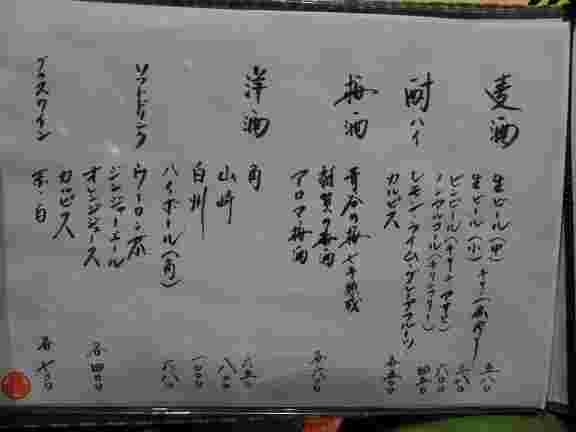 麦酒
生ビール(中)
五八〇
生ビール(小)
三八〇
六〇〇
ノンアルコール
四五〇
酎ハイ
レモン・ライム・グレープフルーツ
カルピス
各五〇〇
梅酒
雑賀の梅酒
アロマ梅酒
各六〇〇
洋酒
角
六五〇
山崎
八〇〇
白州
一〇〇〇
ハイボール(角)
六八〇
ソフトドリンク
ウーロン茶
ジンジャーエール
オレンジジュース
カルピス
各四〇〇
グラスワイン
赤・白
各七〇〇